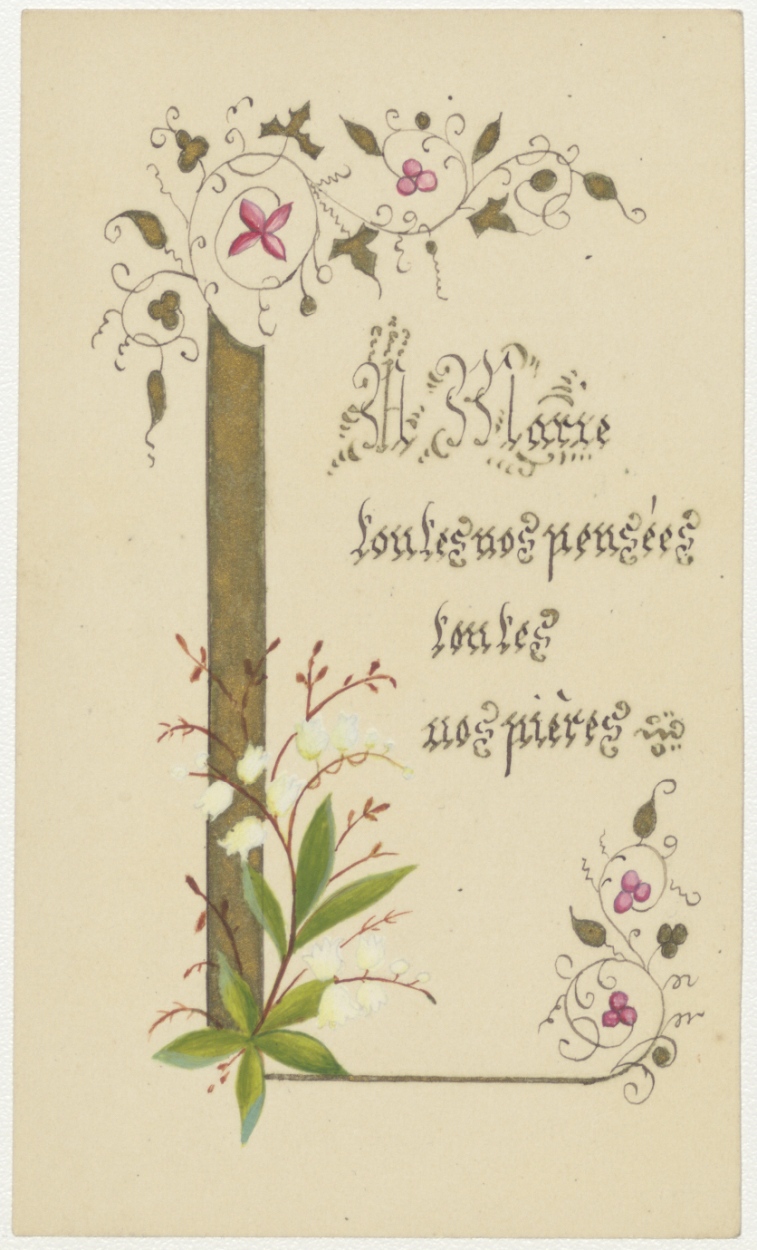 A Marie
toutes nos pensées
toutes
nos prières